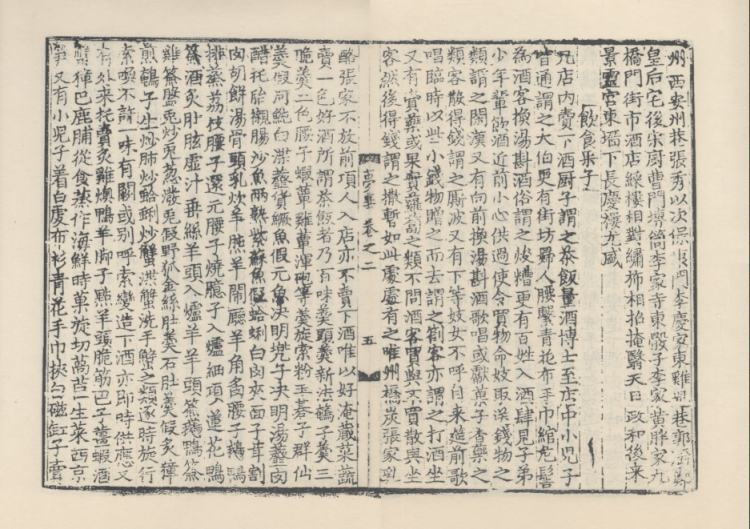 州西安州巷張秀以次保康門李慶家東雞兒巷郭厨鄭
皇后宅後宋厨曹門塼筒李家寺東骰子李家黃胖家九
橋門街市酒店綵樓相對繡旆相招掩翳天日政和後來
景靈宮東墻下長慶樓尤盛
飲食果子
凡店內賣下酒厨子謂之茶飯量酒博士至店中小兒子
皆通謂之大伯更有街坊婦人腰繫青花布手巾綰危髻
為酒客換湯斟酒俗謂之焌糟更有百姓入酒肆見子弟
少年輩飲酒近前小心供過使令買物命妓取送錢物之
類謂之閑漢又有向前換湯斟酒歌唱或獻菓子香藥之
類客散得錢謂之厮波又有下等妓女不呼自來筵前歌
唱臨時以些小錢物贈之而去謂之劄客亦謂之打酒坐
又有賣藥或果實蘿蔔之類不問酒客買與不買散與坐
客然後得錢謂之撒暫如此處處有之唯州橋炭張家乳
夢華 卷之二 五
酪張家不放前項人入店亦不賣下酒唯以好淹藏菜蔬
賣一色好酒所謂茶飯者乃百味羹頭羹新法鵪子羹三
脆羹二色腰子蝦蕈雞蕈渾砲等羹旋索粉玉碁子群仙
羹假河魨白渫虀貨鱖魚假元魚决明兜子决明湯虀肉
醋托胎襯腸沙魚兩熟紫蘇魚假蛤蜊白肉夾面子茸割
肉胡餅湯骨頭乳炊羊㸆羊鬧廳羊角腰子鵝鴨
排蒸荔枝腰子還元腰子燒臆子入爐細項蓮花鴨
簽酒炙肚胘虛汁垂絲羊頭入爐羊羊頭簽鵝鴨簽
雞簽盤兔炒兔葱潑兔假野狐金絲肚羹石肚羹假炙獐
煎鵪子生炒肺炒蛤蜊炒蟹渫蟹洗手蟹之類逐時旋行
索喚不許一味有闕或別呼索變造下酒亦即時供應又
有外來托賣炙雞燠鴨羊脚子點羊頭脆筋巴子薑蝦酒
蟹獐巴鹿脯從食蒸作海鮮時菓旋切萵苣生菜西京
笋又有小兒子着白虔布衫青花手巾挾白磁缸子賣